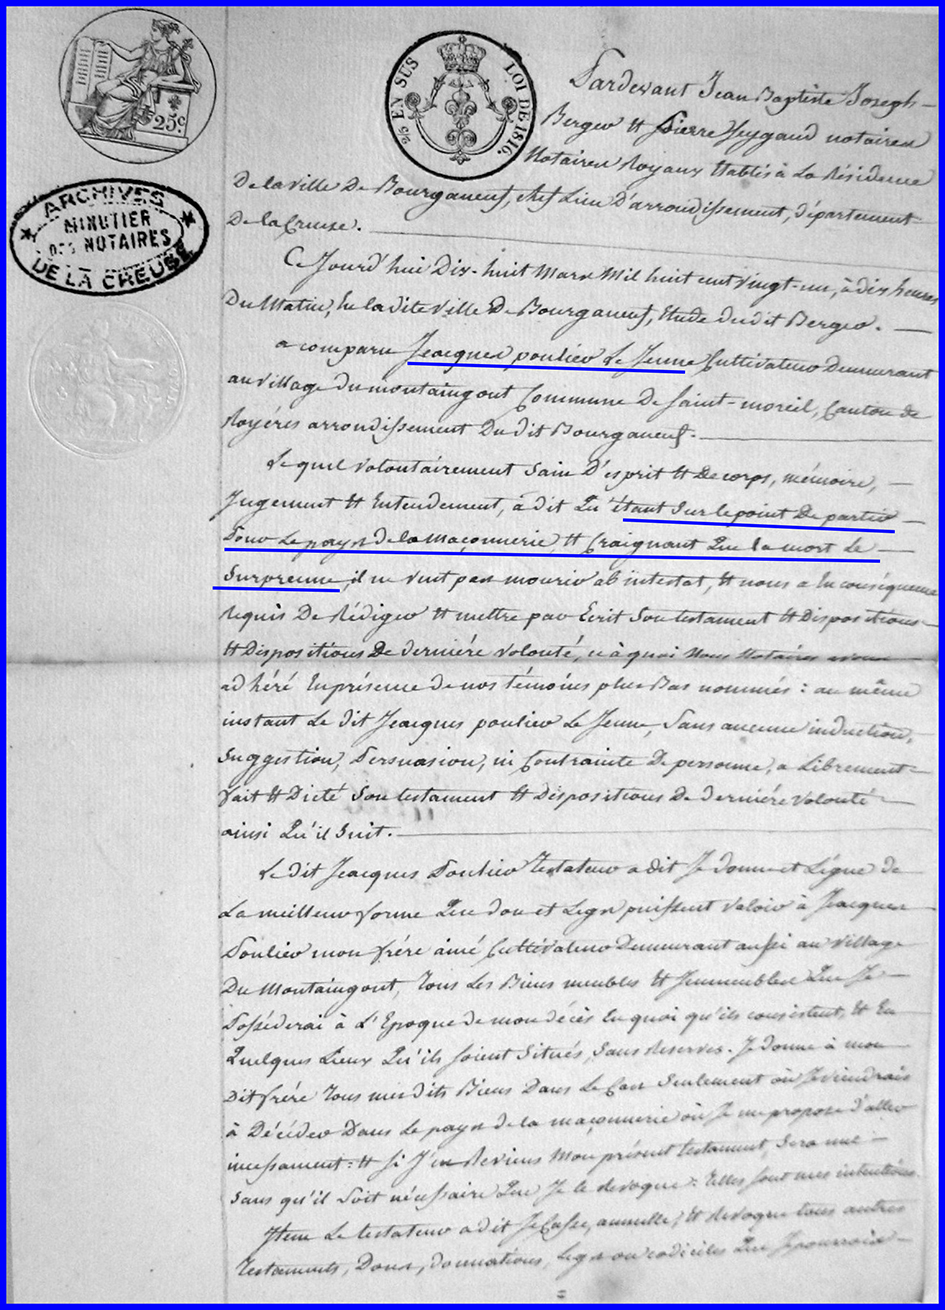 25c
5/6 EN SUS LOI DE 1816.
ARCHIVES
MINUTIER
DES NOTAIRES
DE LA CREUSE
Pardevant Jean Baptiste Joseph
Berger et Pierre Peygaud notaires
Notaires Royaux établis à La Résidence
De la ville De Bourganeuf, chef Lieu D'arrondissement, département
De la Creuse.
Ce Jourd'hui Dix-huit Mars Mil huit cent vingt-un, à dix heures
Du Matin, En la dite ville De Bourganeuf, Etude du dit Berger.
a comparu Jeacques poulier Le Jeune Cultivateur Demeurant
au village du montaingout Commune De Saint-moreil, Canton de
Royéres arrondissement Du dit Bourganeuf.
Le quel volontairement Sain D'esprit et De corps, mémoire,
Jugement et Entendement, à dit Qu'étant Sur le point De partir
Pour Le pays de la maçonnerie, et Craignant Que la mort Le
Surprenne, il ne veut pas mourir ab intestat, et nous a En conséquence
requis De Rédiger et mettre par Ecrit Son testament et Dispositions
et Dispositions De derniére volonté, ce à quoi Nous Notaires avons
adhéré En présence de nos témoins plus Bas nommés : au même
instant Le dit Jeacques poulier Le Jeune, Sans aucune induction,
Suggestion, Persuasion, ni Contrainte De personne, a Librement
fait et Dicté Son testament et Dispositions De derniére volonté
ainsi Qu'il Suit.
Le dit Jeacques Poulier Testateur a dit Je donne et Légue de
La meilleur forme Que don et Legs puissent valoir à Jeacques
Poulier mon frére ainé Cultivateur Demeurant aussi au village
Du Montaingout, Tous Les Biens meubles et Immeubles Que Je
Posséderai à L'Epoque de mon décès En quoi qu'ils consistent, et En
Quelques Lieux Qu'ils Soient Situés, Sans Reserves. Je donne à mon
Dit frére Tous mes dits Biens Dans Le Cas Seulement où Je viendrais
à Décéder Dans Le pays de la maçonnerie où Je me propose d'aller
incessament : et Si J'en Reviens Mon présent testament, Sera nul
Sans qu'il Soit nécessaire Que Je le Revoque : Telles Sont mes intentions.
Item Le testateur a dit Je Casse, annulle, et Revoque tous autres
Testaments, Dons, donnations, Legs ou codiciles Que Je pourrois